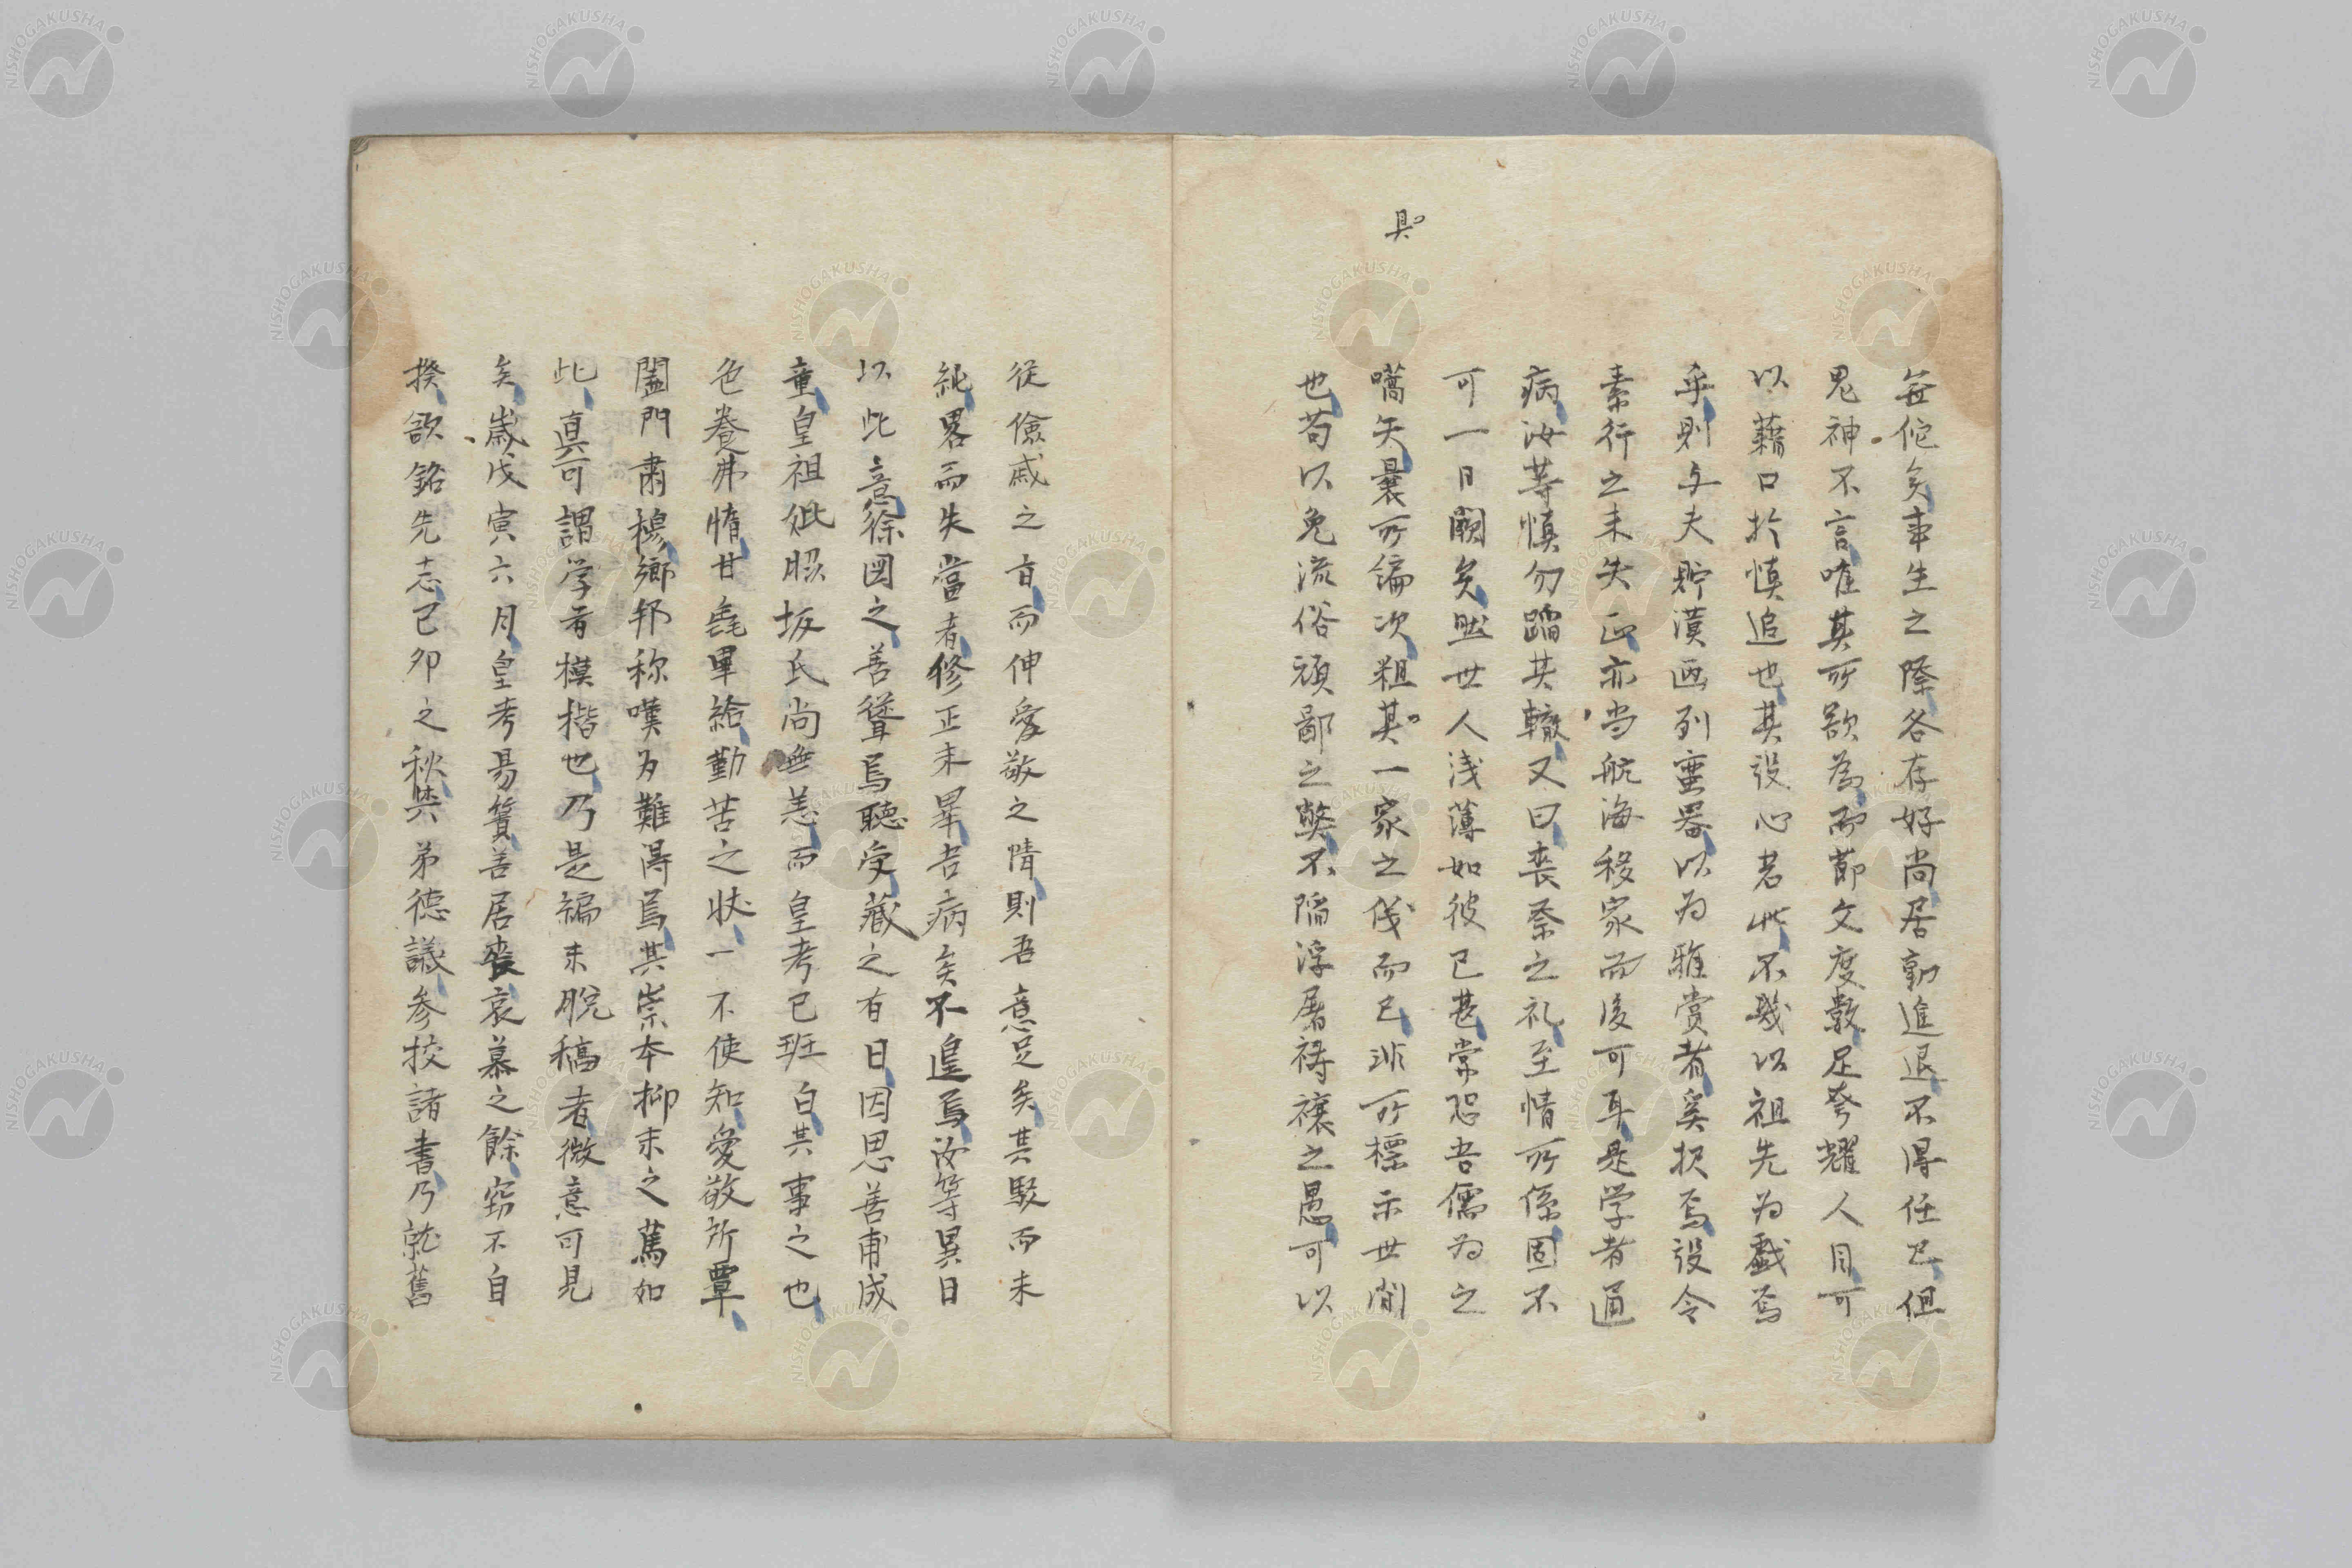 具
無佗矣事生之際各存好尚居動進退不得任己但
鬼神不言唯其所欲為而節文度數足夸耀人目可
以藉口於慎追也其設心若此不幾以祖先為戲焉
乎則与夫貯漢画列蛮器以為雅賞者奚択焉設令
素行之未失正亦当航海移家而後可耳是学者通
病汝等慎勿蹈其轍又曰喪祭之礼至情所係固不
可一日闕矣然世人浅薄如彼已甚常恐吾儒為之
嚆矢曩所編次粗其一家之儀而已非所標示世間
也苟以免流俗頑鄙之弊不陥浮屠祷禳之愚可以
従倹戚之旨而伸愛敬之情則吾意足矣其駁而未
純畧而失當者修正未畢吾病矣不遑焉汝等異日
以此意徐図之善聳焉聴受蔵之有日因思善甫成
童皇祖妣照坂氏尚無恙而皇考已班白共事之也
色養弗惰甘毳畢給勤苦之状一不使知愛敬所覃
闔門肅穆郷邦称嘆為難得焉其崇本抑末之篤如
此真可謂学者模楷也乃是編未脱稿者微意可見
矣歳戊寅六月皇考易簀善居喪哀慕之餘窃不自
揆欲銘先志己卯之秋與弟徳議参挍諸書乃就舊
NISHOGAKUSHA